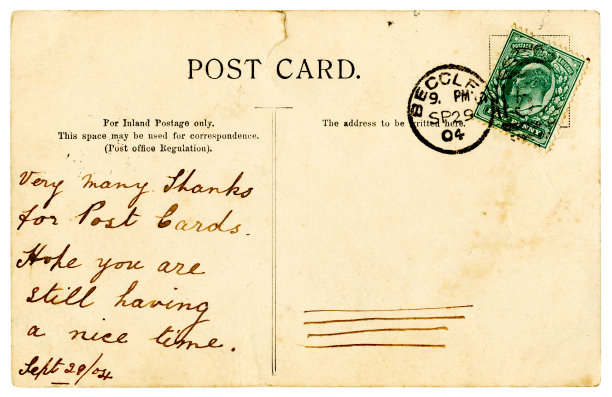 POST CARD.
For Inland Postage only.
This space may be used for correspondence.
(Post office Regulation).
The address to be written here.
BECCLES
9. PM
SP 29
04
Very many Thanks
for Post Cards.
Hope you are
still having
a nice time.
Sept 28/04